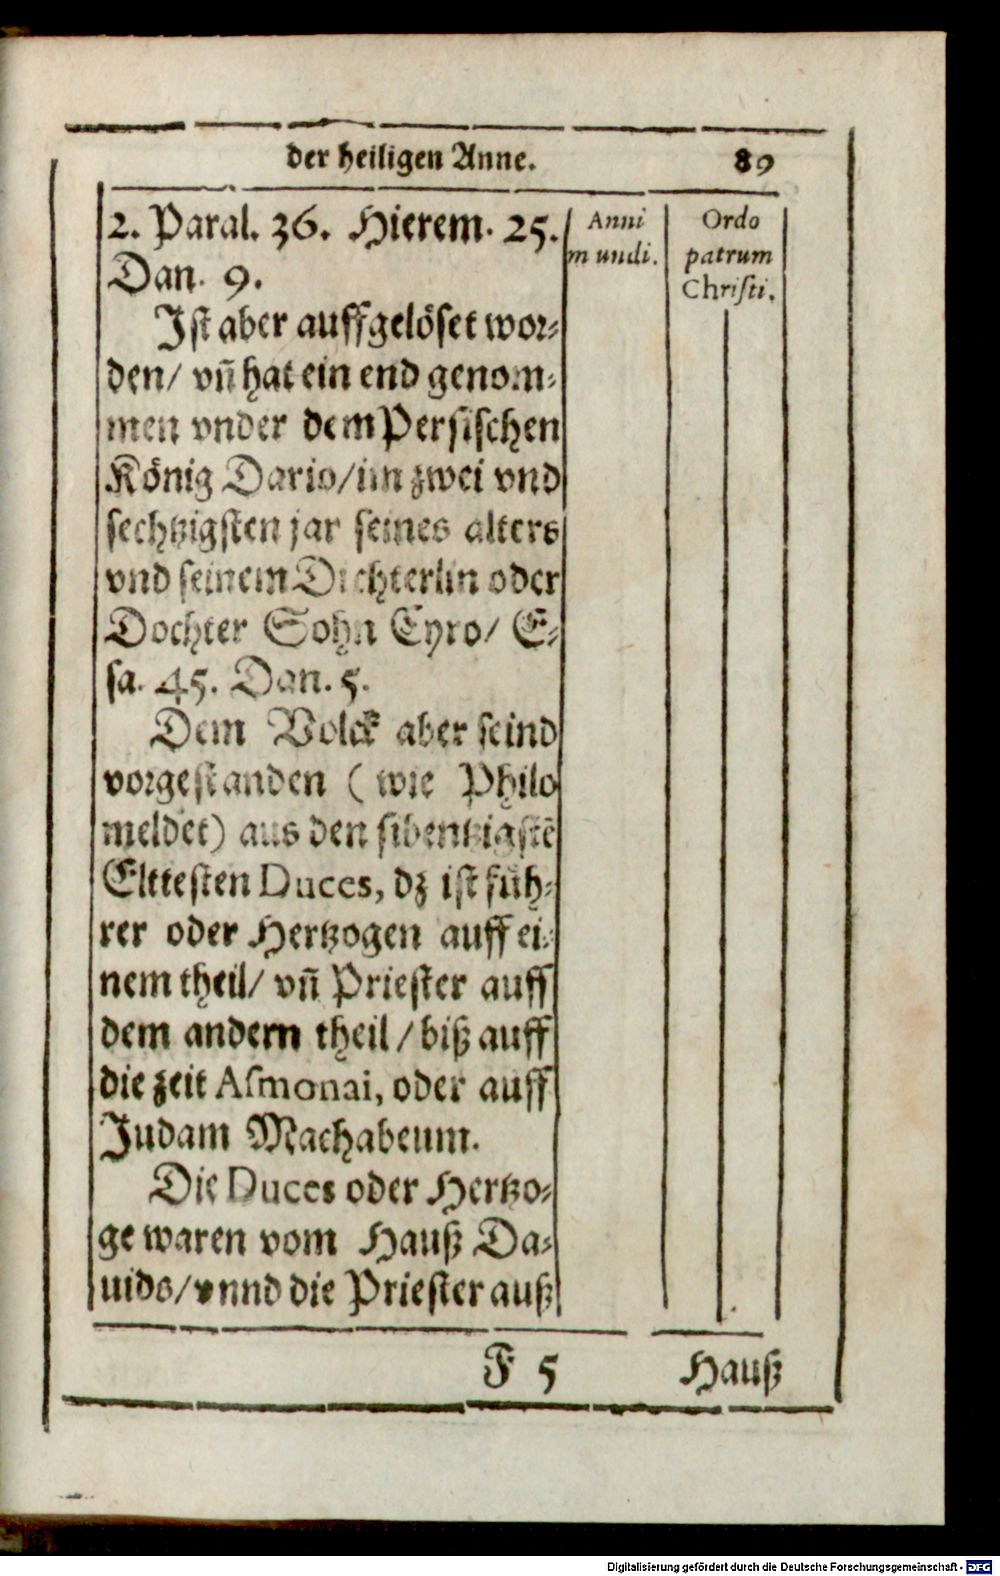 der heiligen Anne. 89
2. Paral. 36. Hierem. 25.
Dan. 9.
Anni
mundi.
Ordo
patrum
Chriſti.
Iſt aber auffgelöſet wor⸗
den/ vn̄ hat ein end genom⸗
men vnder dem Perſiſchen
König Dario/ im zwei vnd
ſechtzigſten jar ſeines alters
vnd ſeinem Dichterlin oder
Dochter Sohn Cyro/ E⸗
ſa. 45. Dan. 5.
Dem Volck aber ſeind
vorgeſtanden ( wie Philo
meldet) aus den ſibentzigſtē
Eltteſten Duces, dz iſt füh⸗
rer oder Hertzogen auff ei⸗
nem theil/ vn̄ Prieſter auff
dem andern theil / biß auff
die zeit Aſmonai, oder auff
Judam Machabeum.
Die Duces oder Hertzo⸗
ge waren vom Hauß Da⸗
uids/ vnnd die Prieſter auß
F 5 Hauß
Digitalisierung gefördert durch die Deutsche Forschungsgemeinschaft - DFG